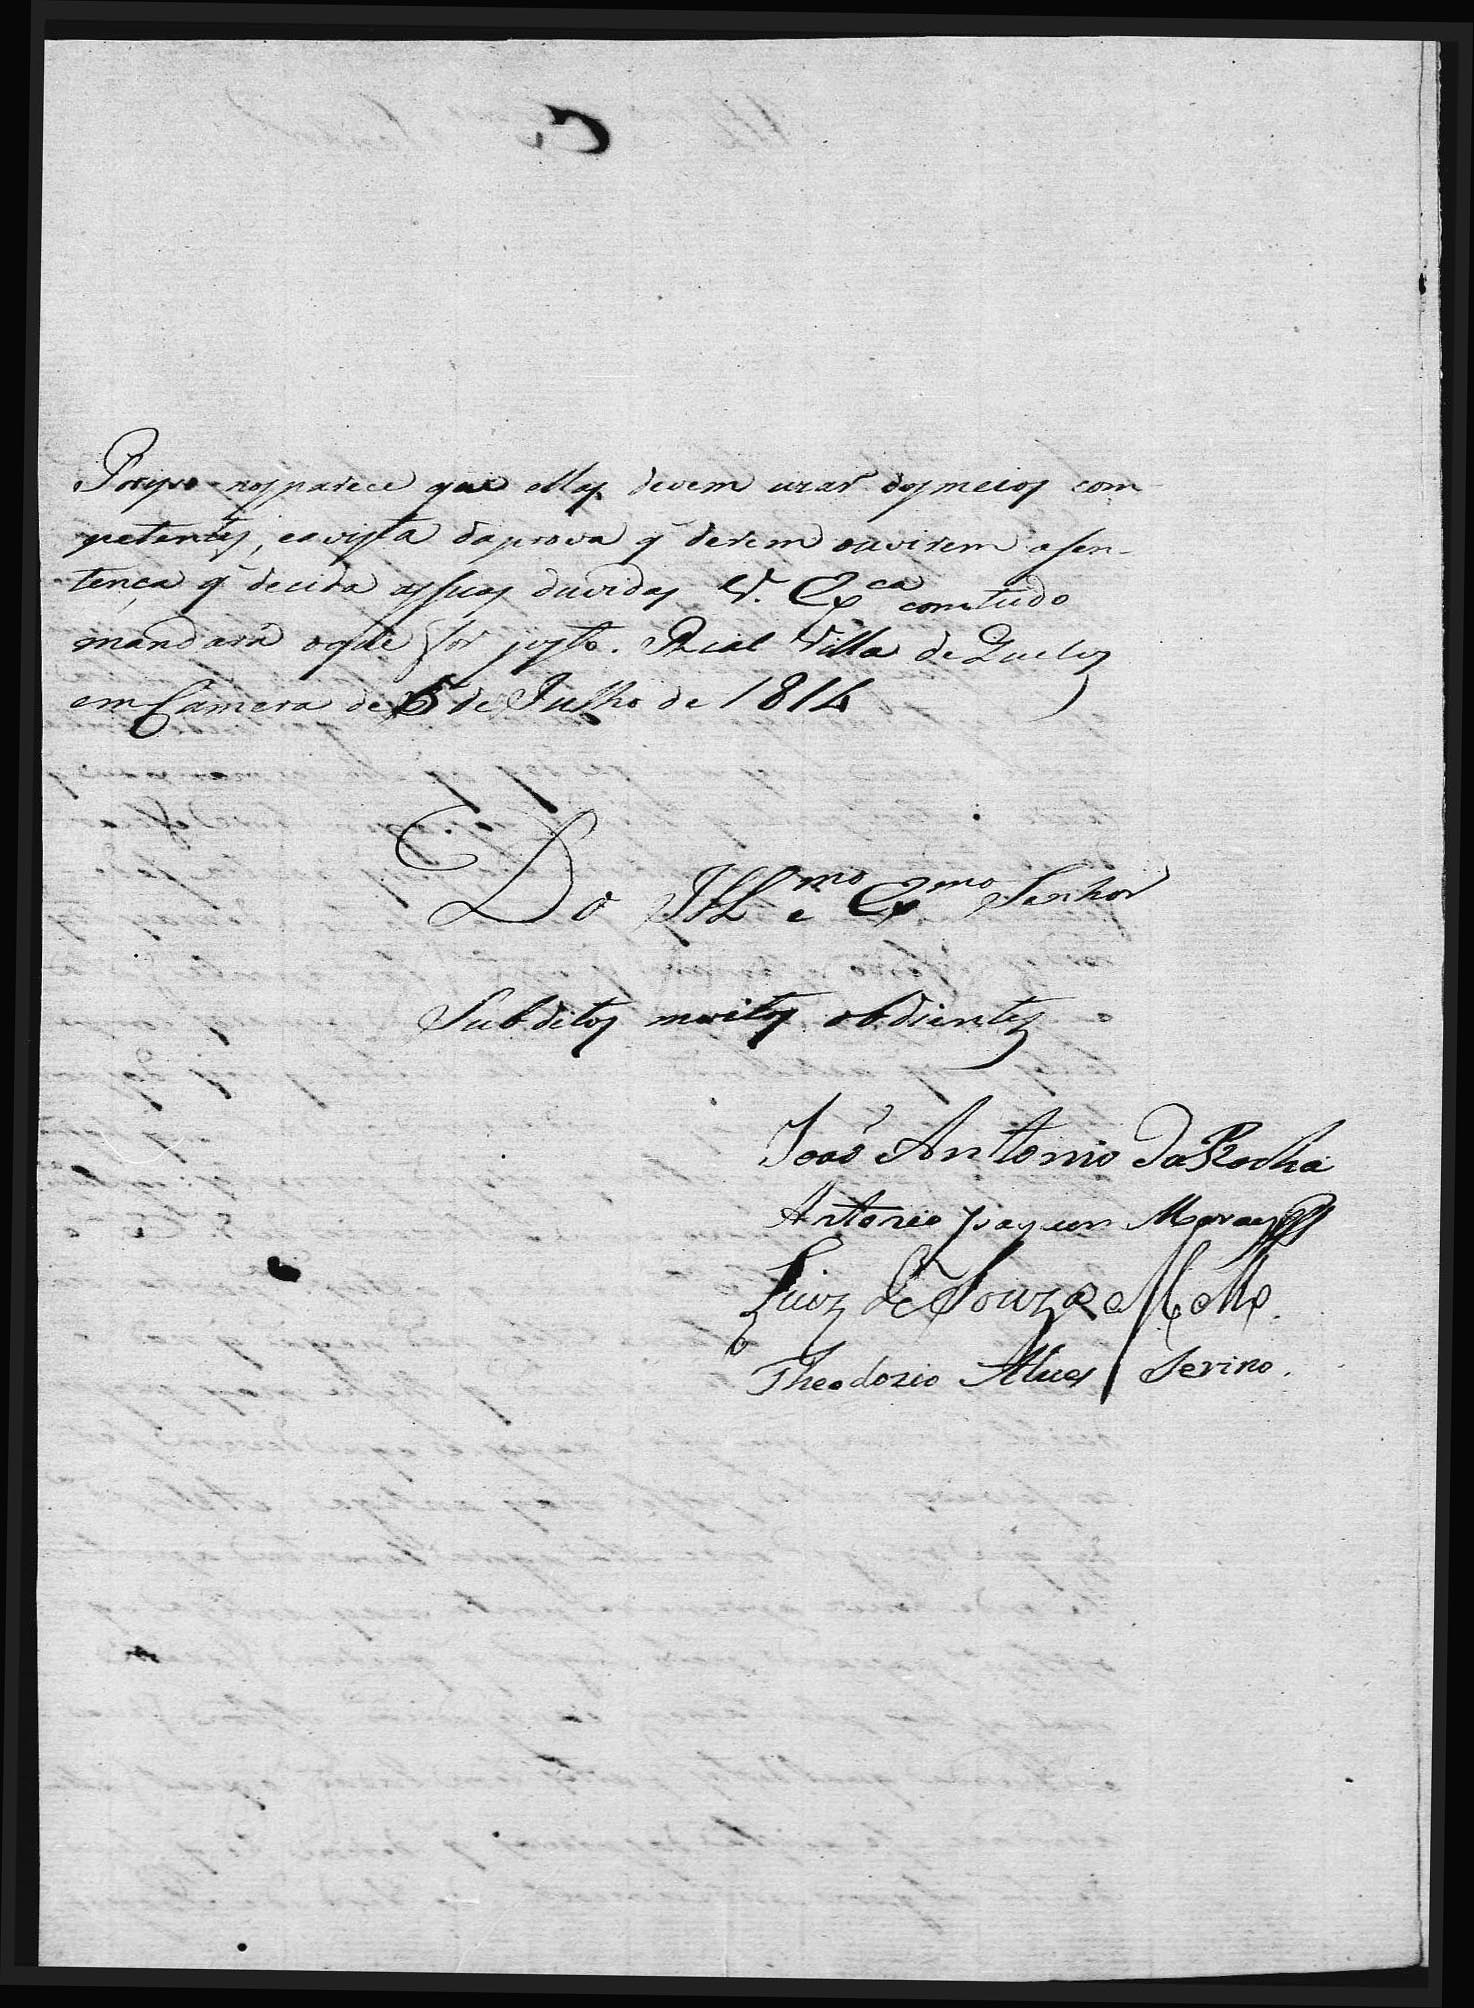 Porisso nos parece que elles devem uzar dos meios com-
petentes, eavista daprova q̃ derem ouvirem asen-
tença q̃ decida assuas duvidas, V. Exca comtudo
mandará oque for justo. Rial Villa de Queluz
em Camera de 6 de Julho de 1814
Do Illmo e Exmo Senhor
Subditos muitos obdientes
João Antonio daRocha
Antonio Joaquim Moraes
Luiz de Souza e Mello
Theodozio Alues Serino.